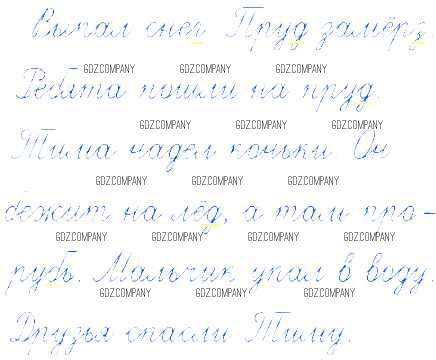 Выпал снег. Пруд замёрз.
GDZ.COMPANY GDZ.COMPANY GDZ.COMPANY
Ребята пошли на пруд.
GDZ.COMPANY GDZ.COMPANY GDZ.COMPANY
Тима надел коньки. Он
GDZ.COMPANY GDZ.COMPANY GDZ.COMPANY
бежит на лёд, а там про-
GDZ.COMPANY GDZ.COMPANY GDZ.COMPANY GDZ.COMPANY
рубь. Мальчик упал в воду.
GDZ.COMPANY GDZ.COMPANY GDZ.COMPANY
Друзья спасли Тиму.